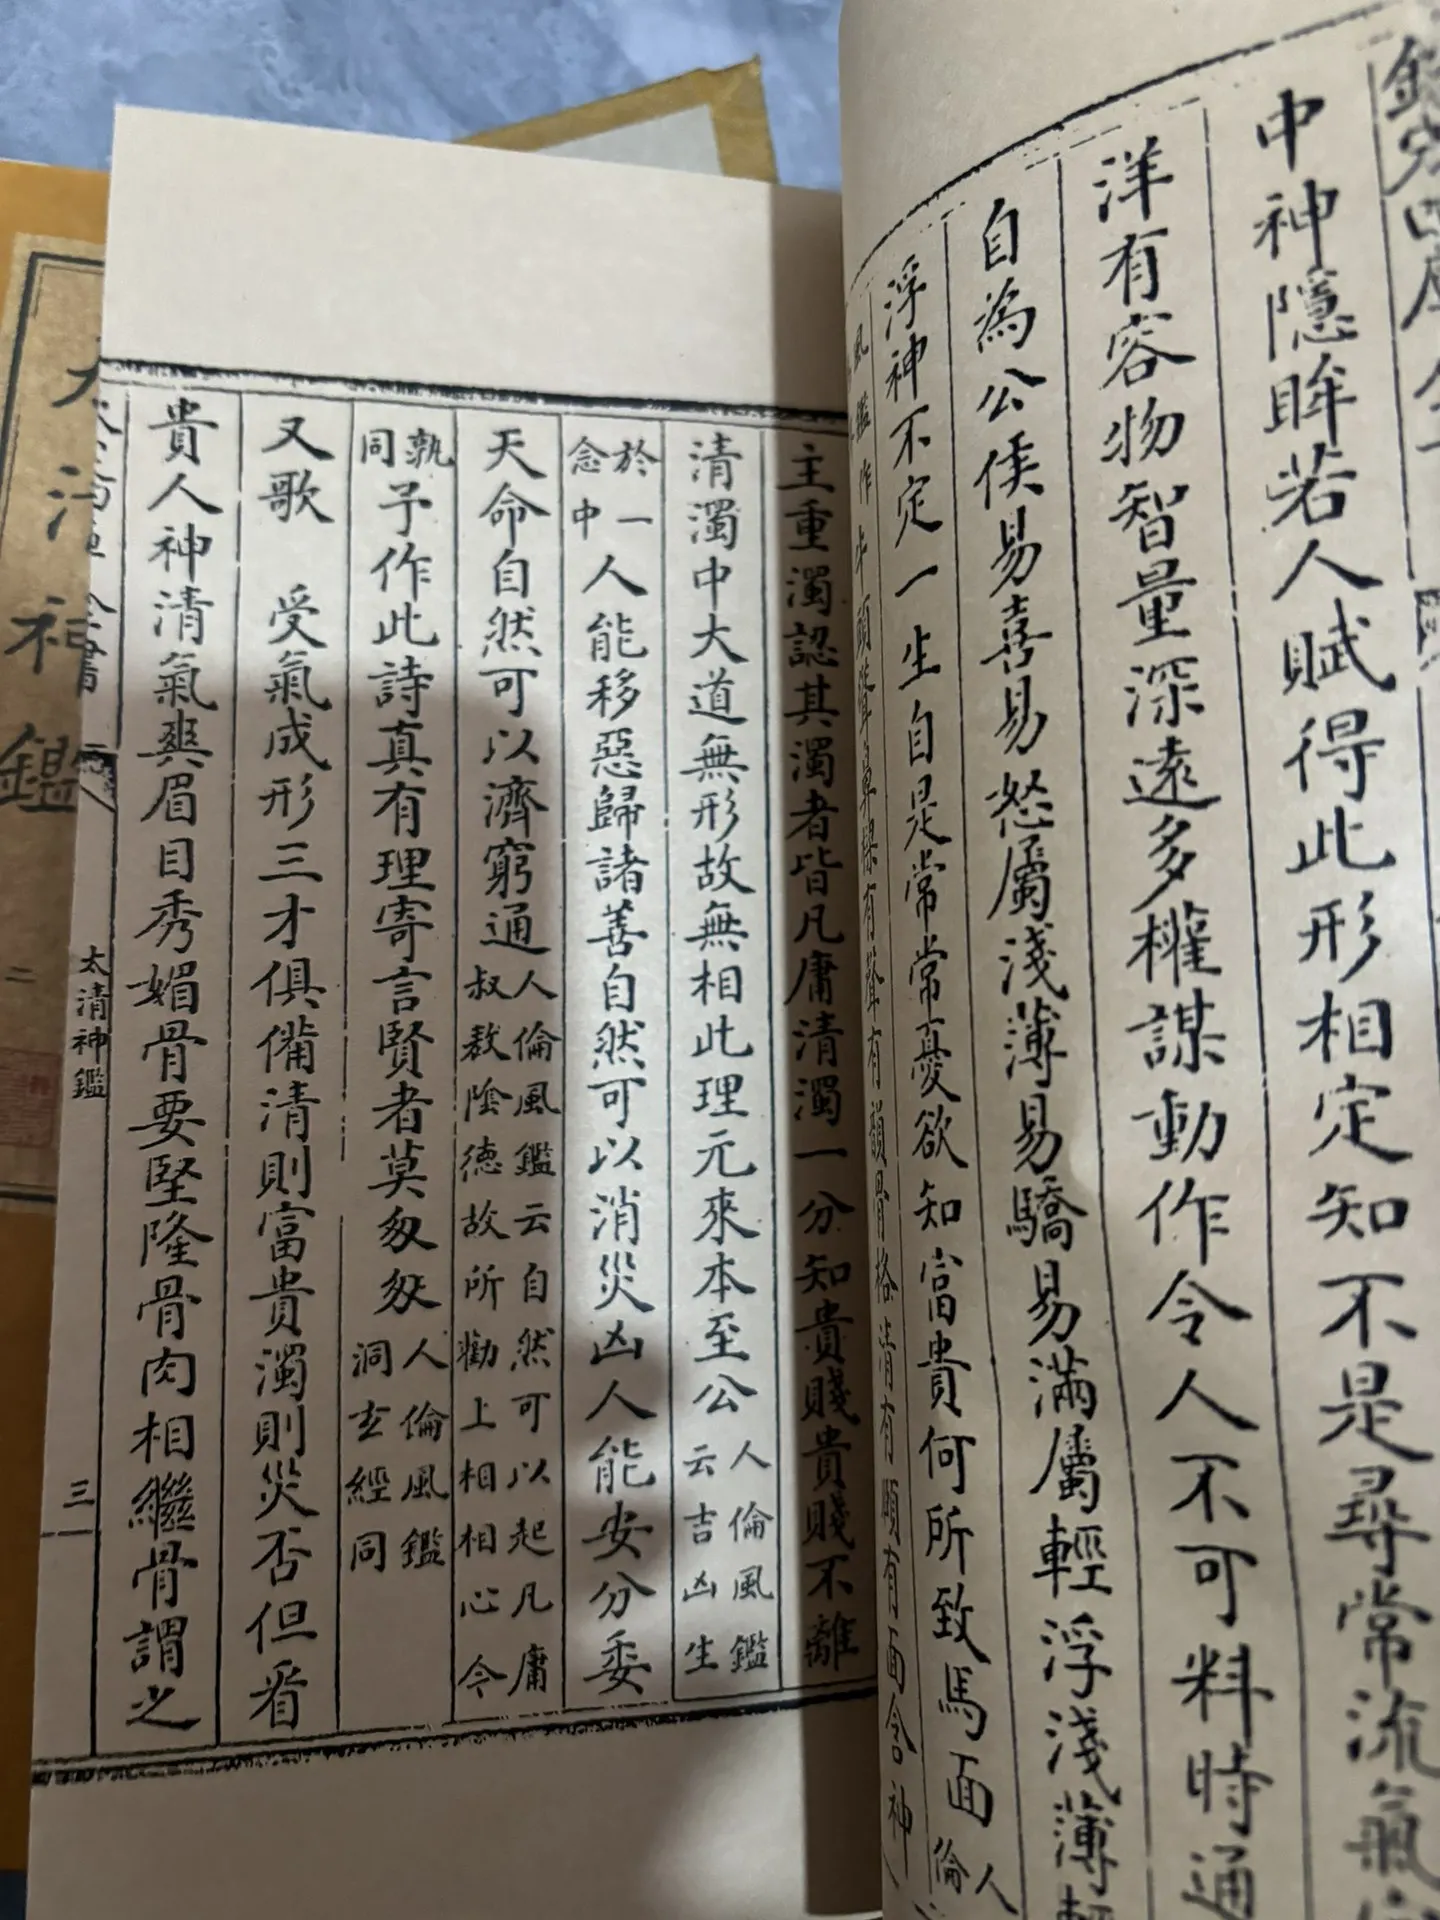 中神隱眸若人賦得此形相定知不是尋常流氣
洋有容物智量深遠多權謀動作令人不可料時通
自為公侯易喜易怒屬淺薄易驕易滿屬輕浮淺薄
浮神不定一生自是常常憂欲知富貴何所致馬面人倫
風鑑作牛頭聲有聲有韻骨格清有顋有面含神
主重濁認其濁者皆凡庸清濁一分知貴賤貴賤不離
清濁中大道無形故無相此理元來本至公人倫風鑑云吉凶生
於一念中人能移惡歸諸善自然可以消災凶人能安分委
天命自然可以濟窮通人倫風鑑云自然可以起凡庸叔敖陰德故所勸上相相心令
孰同予作此詩真有理寄言賢者莫匆匆人倫風鑑洞玄經同
又歌 受氣成形三才俱備清則富貴濁則災否但看
貴人神清氣爽眉目秀媚骨要堅隆骨肉相繼骨謂之
太清神鑑
三
神鑑
二